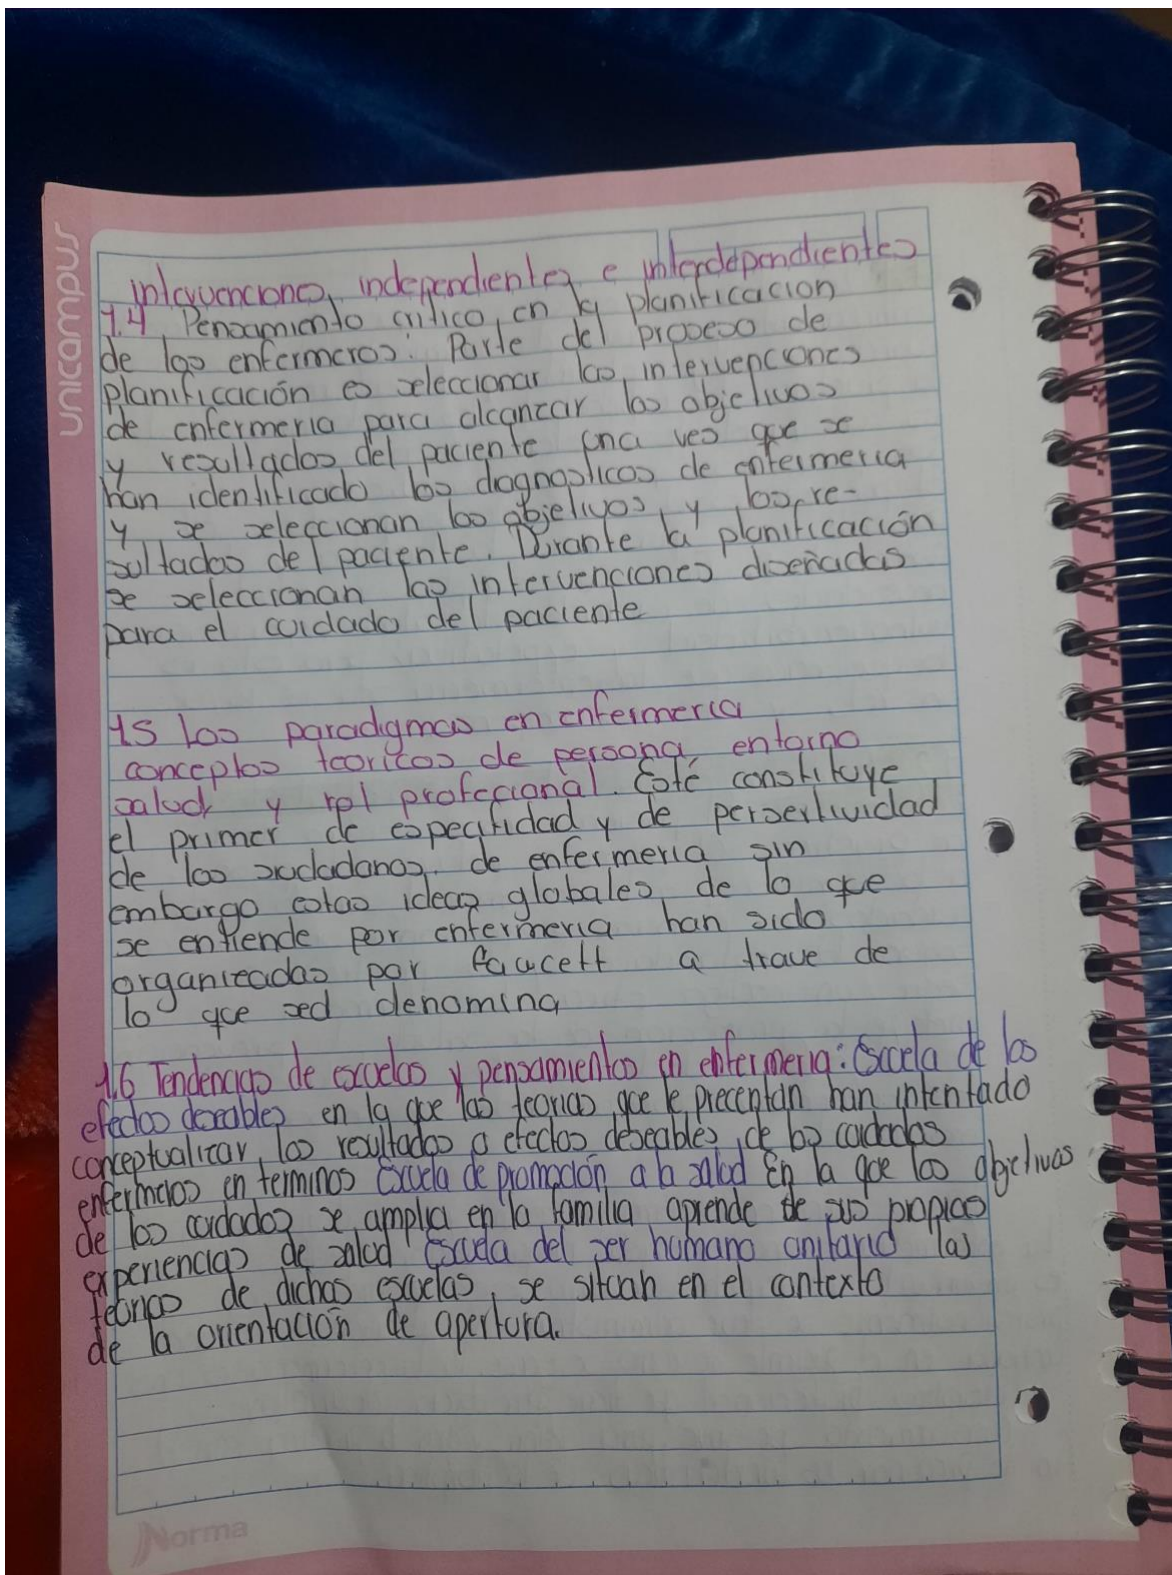 unicampus
intervenciones, independientes e interdependientes
1.4 Pensamiento critico, en la planificacion
de los enfermeros: Parte del proceso de
planificación es seleccionar las intervenciones
de enfermeria para alcanzar los objetivos
y resultados del paciente una ves que se
han identificado los diagnosticos de enfermeria
y se seleccionan los objetivos y los re-
sultados del paciente. Durante la planificación
se seleccionan las intervenciones diseñadas
para el cuidado del paciente
15 los paradigmas en enfermeria
conceptos teoricos de persona, entorno
salud, y rol profecional. Esté constituye
el primer de especifidad y de persertividad
de los ciudadanos, de enfermeria sin
embargo estas ideas globales de lo que
se entiende por enfermeria han sido
organizadas por fawcett a trave de
lo que sed denomina
1.6 Tendencias de escuelas y pensamientos en enfermeria: Escuela de los
efectos deseables en la que las teorias que le precentan han intentado
conceptualizar, los resultados o efectos deseables, de los cuidados
enfermeros en terminos Escuela de promoción a la salud En la que los objetivos
de los cuidados se amplia en la familia, aprende de sus propias
experiencias de salud Escuela del ser humano unitario las
teorias de dichas escuelas, se situan en el contexto
de la orientación de apertura.
Norma